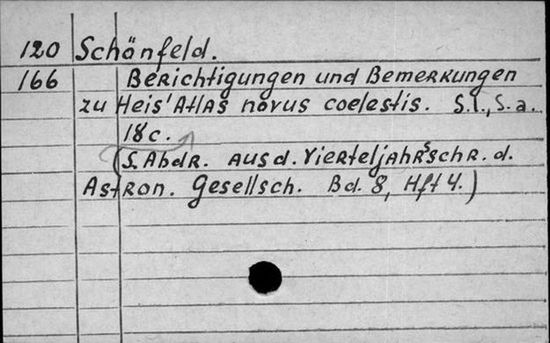 120 Schönfeld.
166 Berichtigungen und Bemerkungen
zu Heis' Atlas novus coelestis. S.l., s.a.
18c.
(S. Abdr. aus d. Vierteljahrsschr. d.
Astron. Gesellsch. Bd. 8, Hft 4.)